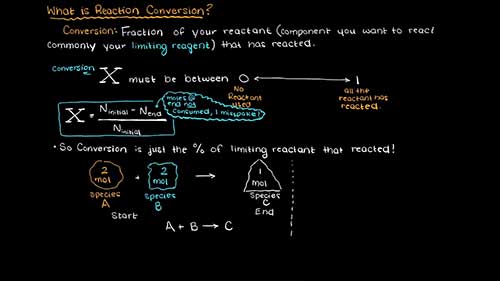 What is Reaction Conversion?
Conversion: Fraction of your reactant (component you want to react
commonly your limiting reagent) that has reacted.
Conversion
X must be between 0 1
No Reactant used
all the reactant has reacted.
X = N initial - N end / N initial
moles @ end not consumed, I misspoke!
• So Conversion is just the % of limiting reactant that reacted!
2 mol + 2 mol → 1 mol
Species A Species B Species C
Start End
A + B → C